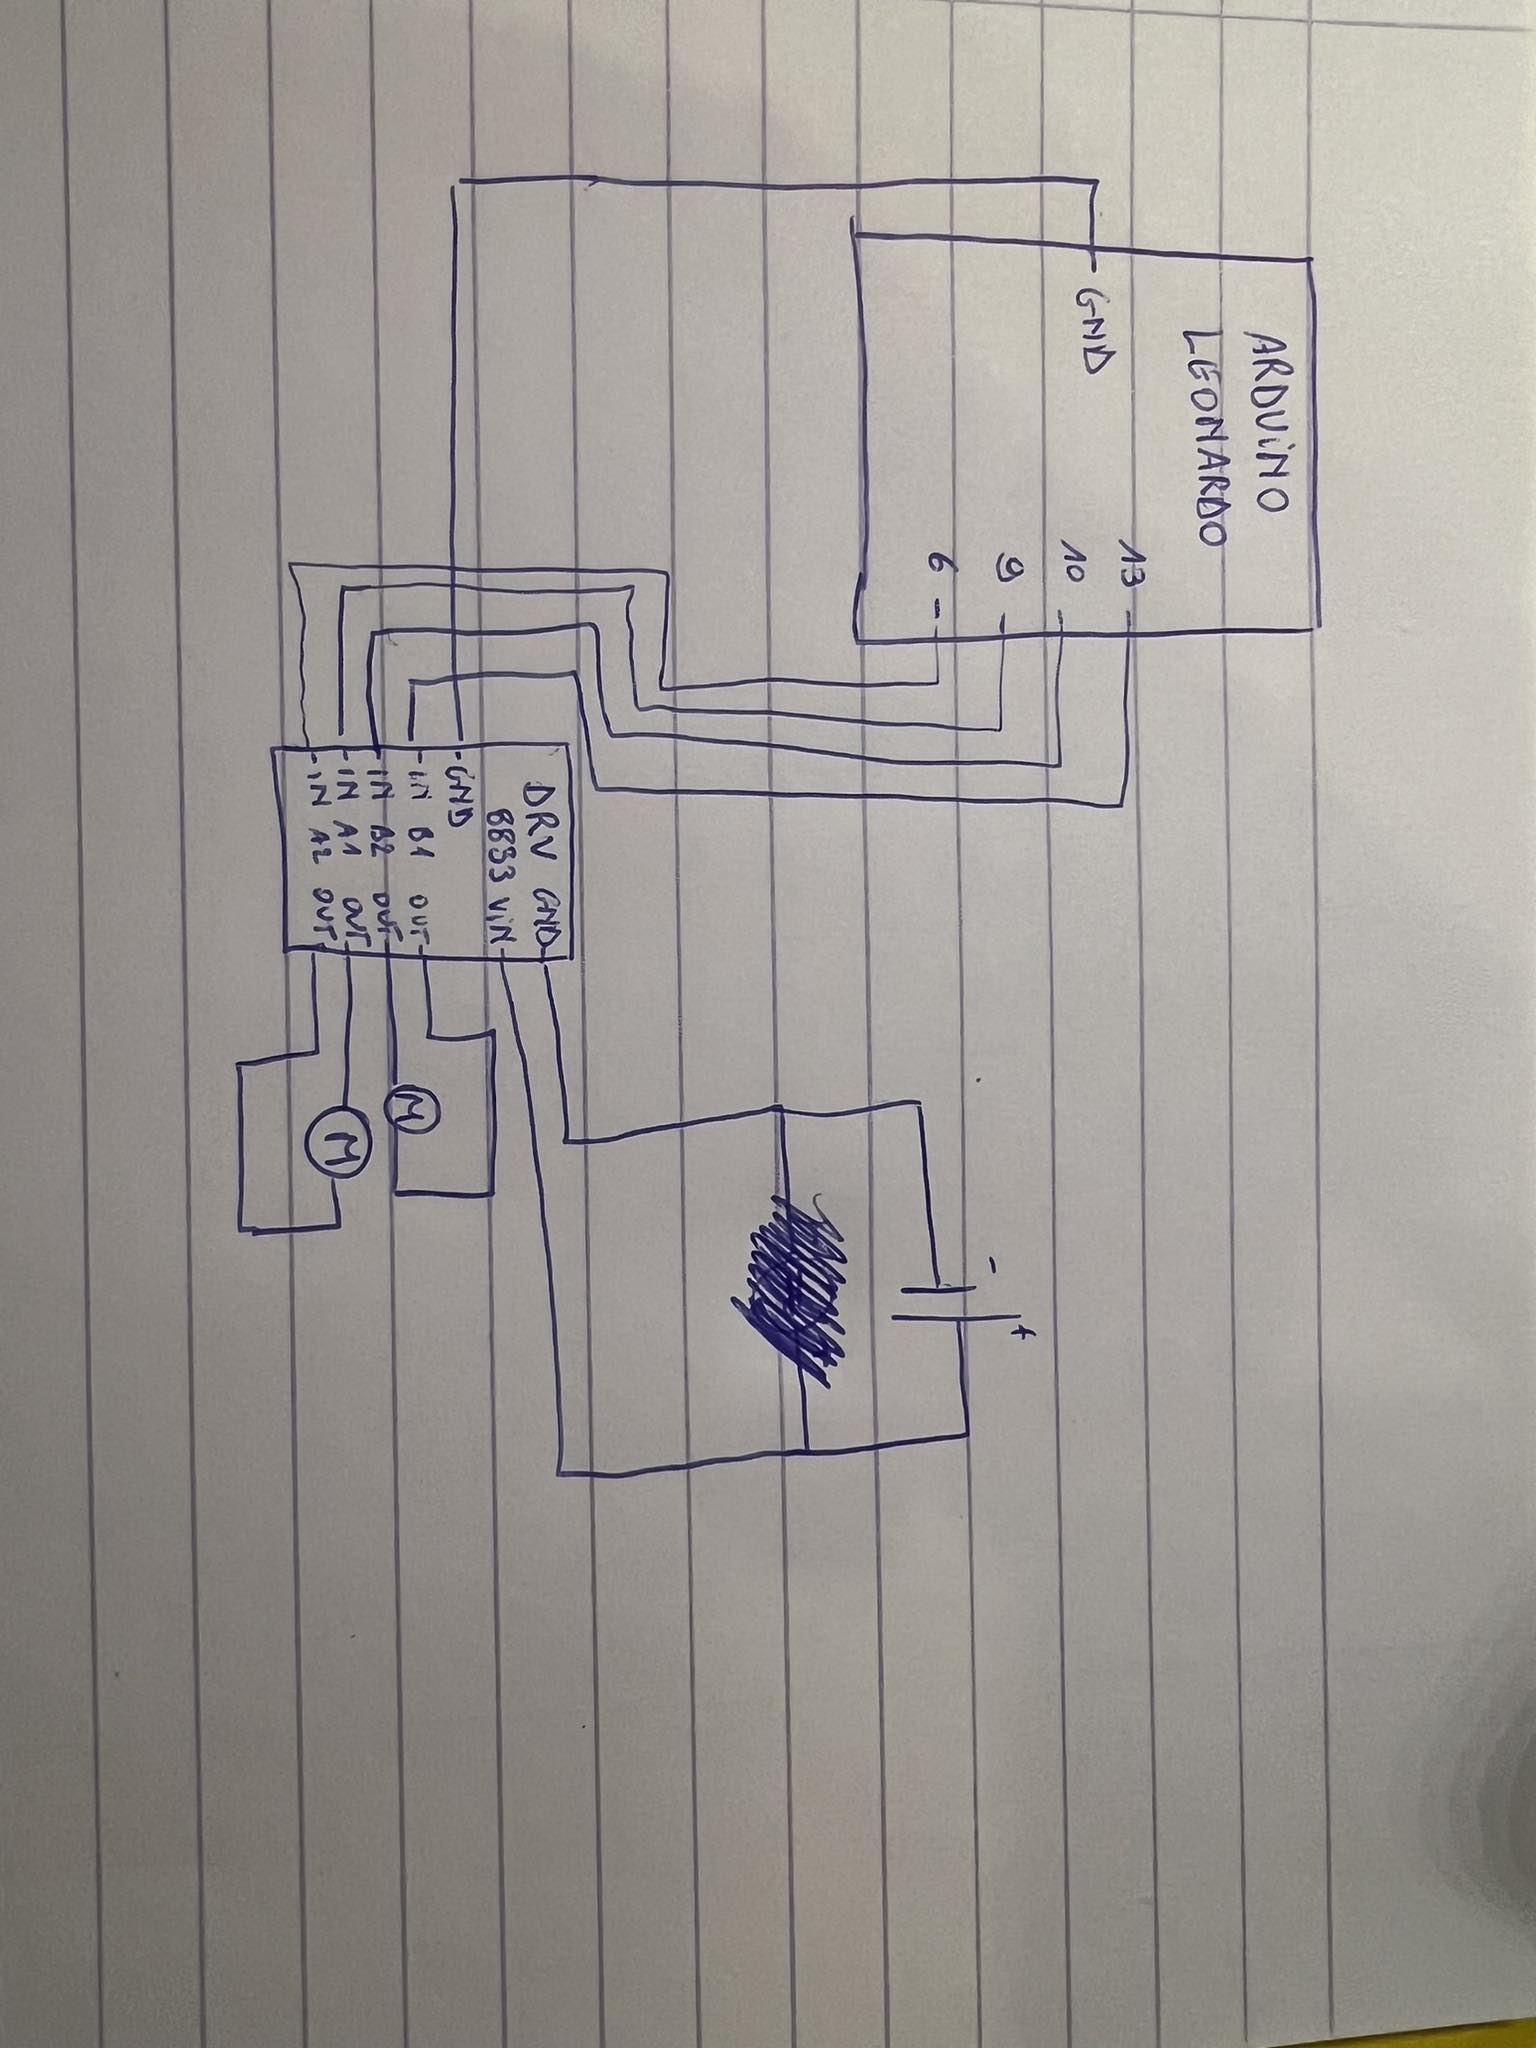 ARDUiNO
LEONARDO
GND
13
10
9
6
DRV GND
8833 ViN
GND
IN B1 OUT
IN B2 OUT
IN A1 OUT
IN A2 OUT
M
M
-
+